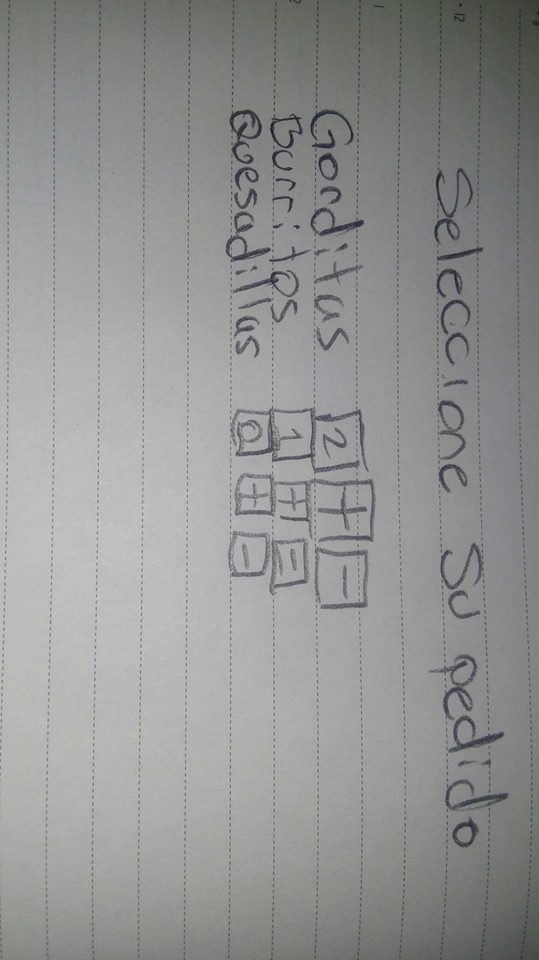 Seleccione su pedido
Gorditas 2 + -
Burritos 1 + -
Quesadillas 0 + -